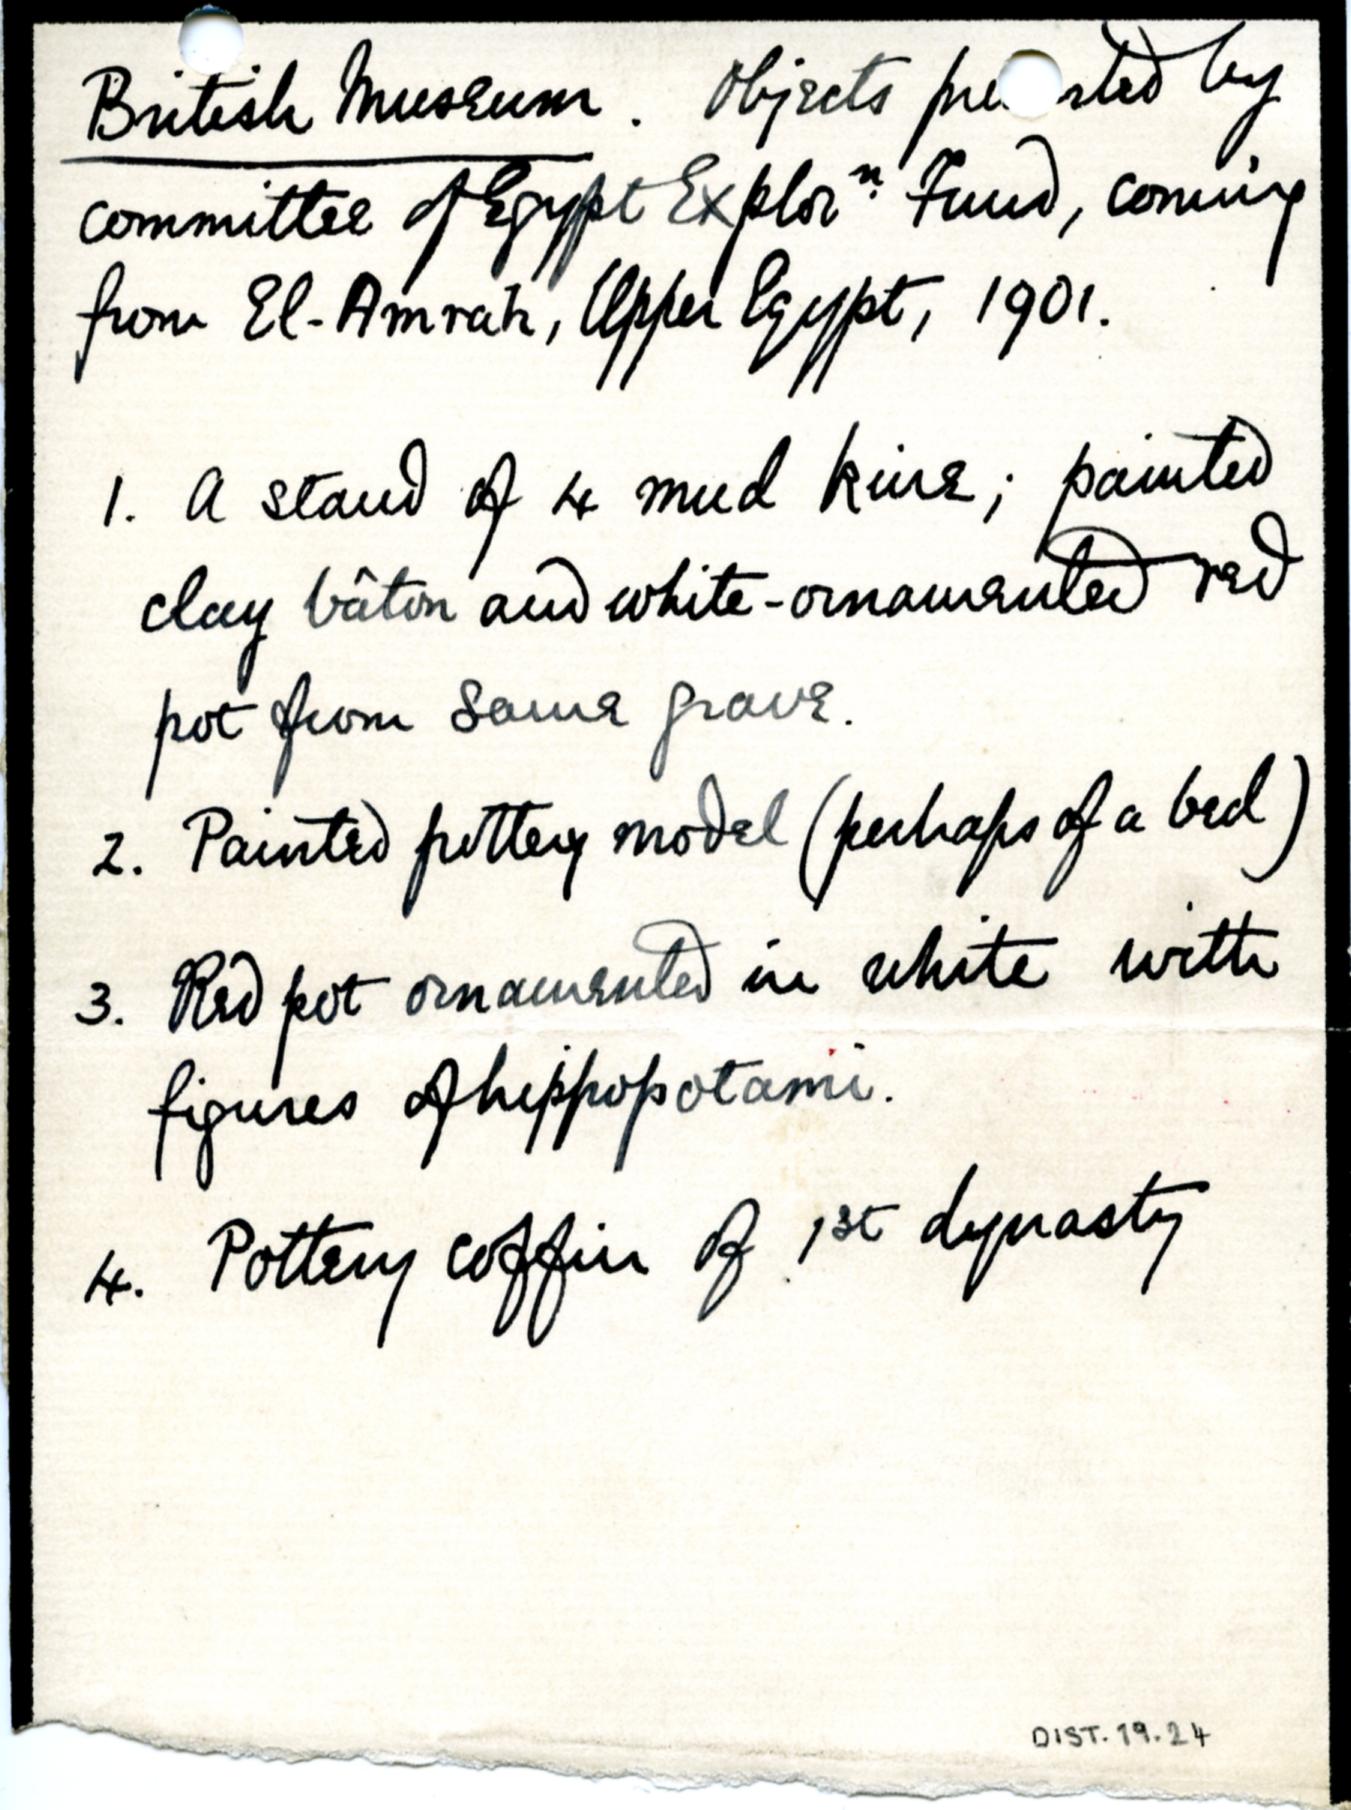 British Museum. Objects presented by
committee of Egypt Explorn. Fund, coming
from El-Amrah, Upper Egypt, 1901.
1. A stand of 4 mud kine; painted
clay bâton and white-ornamented red
pot from same grave.
2. Painted pottery model (perhaps of a bed)
3. Red pot ornamented in white with
figures of hippopotami.
4. Pottery coffin of 1st dynasty
DIST. 19.24